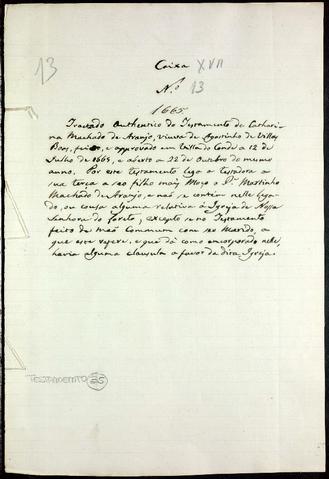 13
Caixa XVII
N.º 13
1665
Tractado Authentico do Testamento de Cathari-
na Machado de Araujo, viuva de Agostinho de Villas
Boas, feito, e approvado em Villa do Conde a 12 de
Julho de 1665, e aberto a 22 de Outubro do mesmo
anno. Por este testamento lega a testadora a
sua terça a seo filho mais moço o P.e Martinho
Machado de Araujo, e naõ se contem nelle lega-
do, ou cousa alguma relativa á Igreja de Nossa
Senhora do Loreto, excepto se no Testamento
feito de maõ Commum com seo Marido, a
que este refere, e que dá como encorporado nelle,
havia alguma clausula a favor da dita Igreja.
TESTAMENTO 25